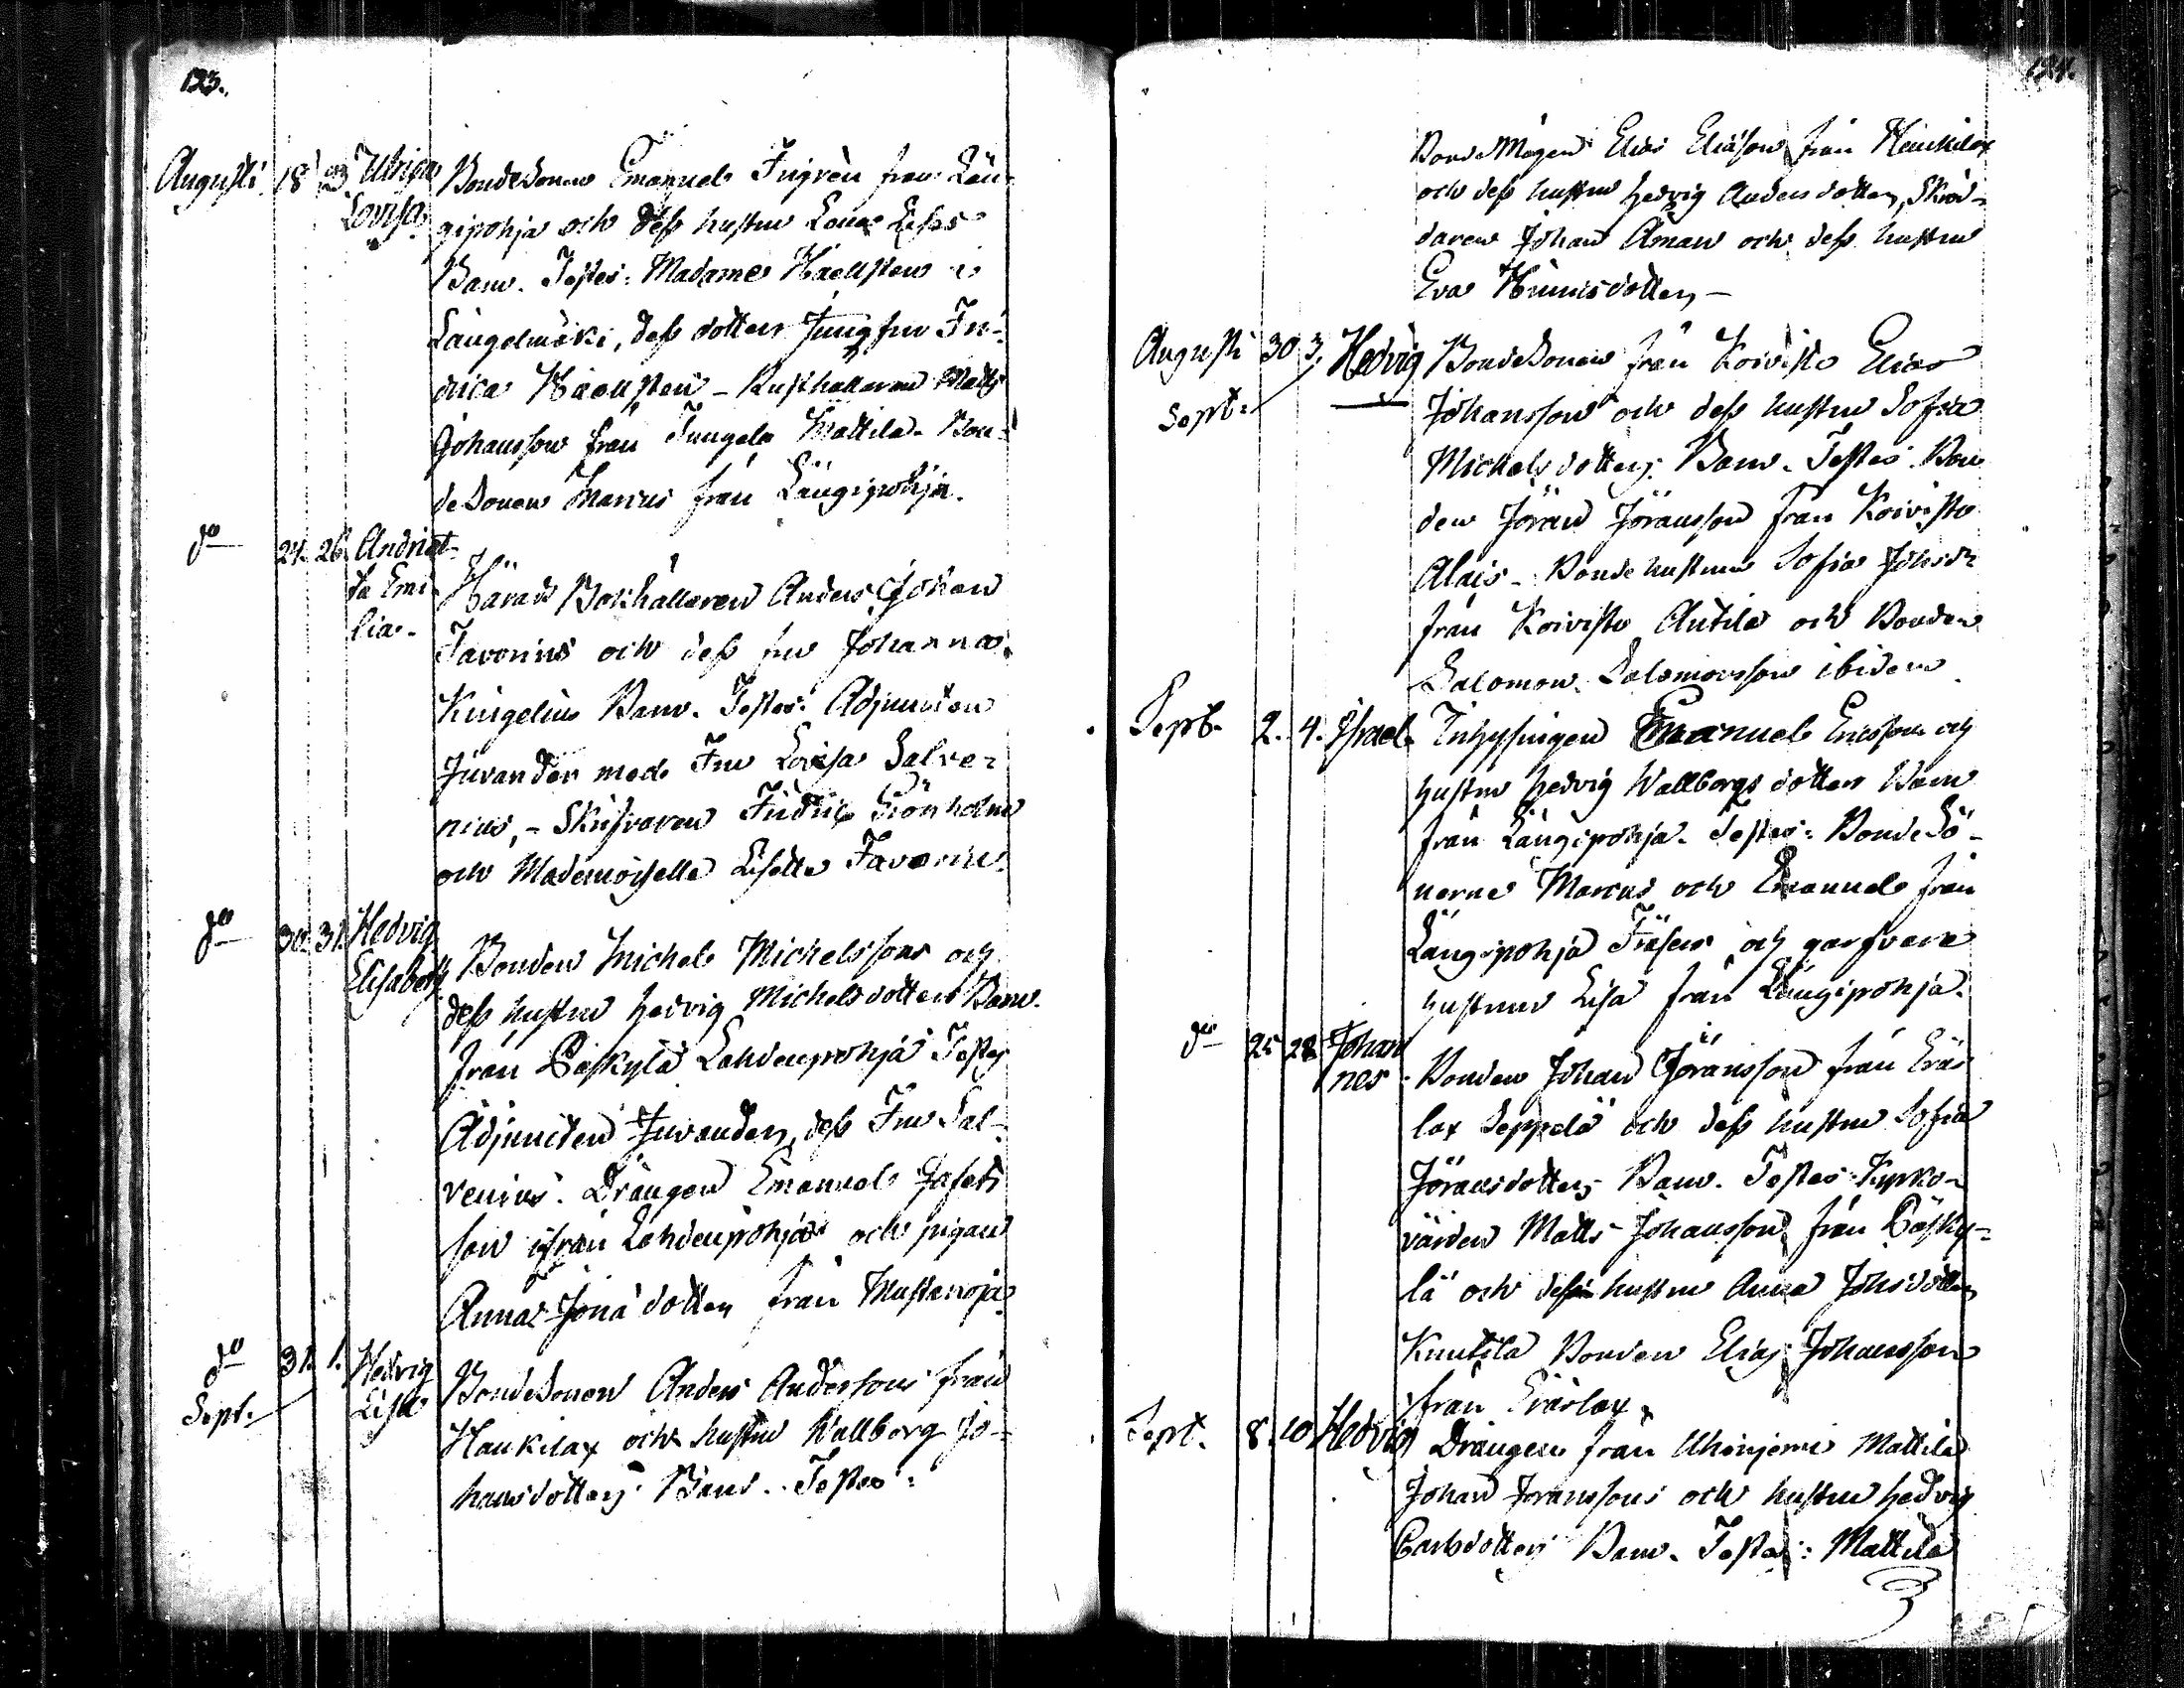 123.
Augusti 18 23 Ulrica Bondesonen Emanuel Frigren från Län-
Lovisa gipohja och dess hustru Lena Lisas
Barn. Testes: Madame Haellsten i
Längelmäki, dess dotter Jungfru Fre-
drica Haellsten - Rusthållaren Matts
Johansson från Jungela Mattila. Bon-
desonen Marcus från Längipohja.
do 24. 26. Andriet-
ta Emi- Härads Bokhållaren Anders Johan
lia. Favorinus och dess fru Johanna
Kingelius Barn. Testes: Adjuncten
Juvander med Fru Lovisa Salve-
nius, - Skrifvaren Fredric Grönholm
och Mademoiselle Lisette Favorin.
do 30. 31. Hedvig
Elisabeth Bonden Michel Michelssons och
dess hustru Hedvig Michelsdotters Barn.
från Päskylä Lahdenpohja Testes
Adjuncten Juvander, dess Fru Sal-
venius. Drängen Emanuel Jafets
son ifrån Lahdenpohja och pigan
Anna Jonädotter från Mustanoja
do 31. 1. Hedvig Bondesonen Anders Anderssons från
Sept. Lisa
Haukilax och hustru Wallborg Jo-
hansdotters Barn. Testes:
124.
Bonde Mågen Elias Eliasson från Haukilax
och dess hustru Hedvig Andersdotter, Skräd-
daren Johan Åman och dess hustru
Eva Henricsdotter -
Augusti 30 3. Hedvig Bondesonen från Koivisto Elias
Sept. Johansson och dess hustru Sofia
Michelsdotters Barn. Testes. Bon
den Jöran Jöransson från Koivisto
Alais - Bonde hustrun Sofia Johsdr
från Koivisto Antila och Bonden
Salomon Salomonsson ibidem
Sept. 2. 4. Israel Inhysingen Emanuel Ericsson och
hustru Hedvig Wallborgs dotters Barn
från Längipohja. Testes: Bonde Sö-
nerne Marcus och Emanuel från
Längipohja Fräsen och garfvare
hustrun Lisa från Längipohja.
do 25 28 Johan
nes Bonden Johan Jöransson från Eräs
lax Seppelä och dess hustru Sofia
Jöransdotters Barn. Testes Kyrko-
värden Matts Johansson från Päsky-
lä och dess hustru Anna Johsdotter
Knutila Bonden Elias Johansson
från Eräslax
Sept. 8. 10 Hedvig Drängen från Uhinjervi Mattila
Johan Joranssons och hustru Hedvig
Carlsdotters Barn. Testes: Mattila